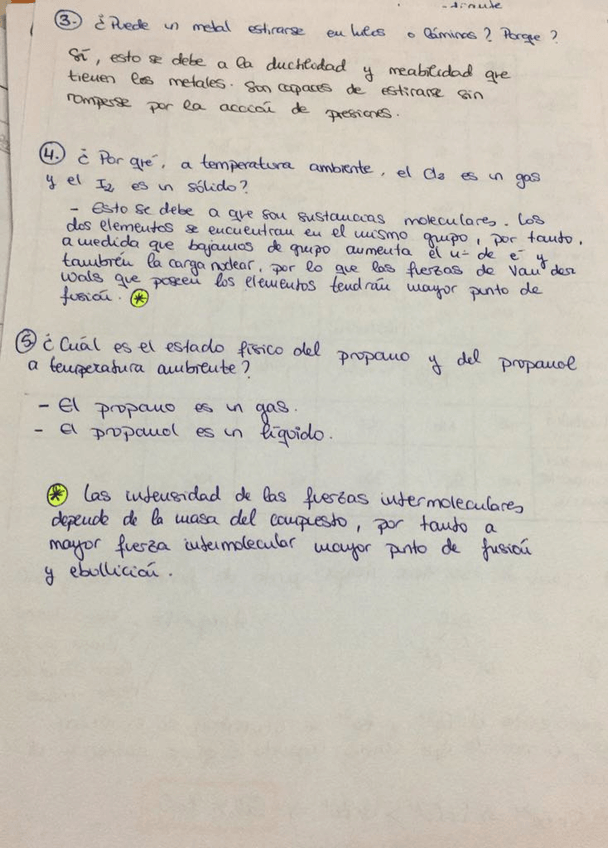 ③. ¿Puede un metal estirarse en hilos o láminas? Porque?
Sí, esto se debe a la ductilidad y meabilidad que
tienen los metales. Son capaces de estirarse sin
romperse por la acción de presiones.
④. ¿Por qué, a temperatura ambiente, el Cl2 es un gas
y el I2 es un sólido?
- Esto se debe a que son sustancias moleculares. Los
dos elementos se encuentran en el mismo grupo, por tanto,
a medida que bajamos de grupo aumenta el nº de e⁻ y
también la carga nuclear, por lo que las fuerzas de Van der
Wals que poseen los elementos tendrán mayor punto de
fusión. *
⑤ ¿Cuál es el estado físico del propano y del propanol
a temperatura ambiente?
- El propano es un gas.
- El propanol es un líquido.
* Las intensidad de las fuerzas intermoleculares
depende de la masa del compuesto, por tanto a
mayor fuerza intermolecular mayor punto de fusión
y ebullición.